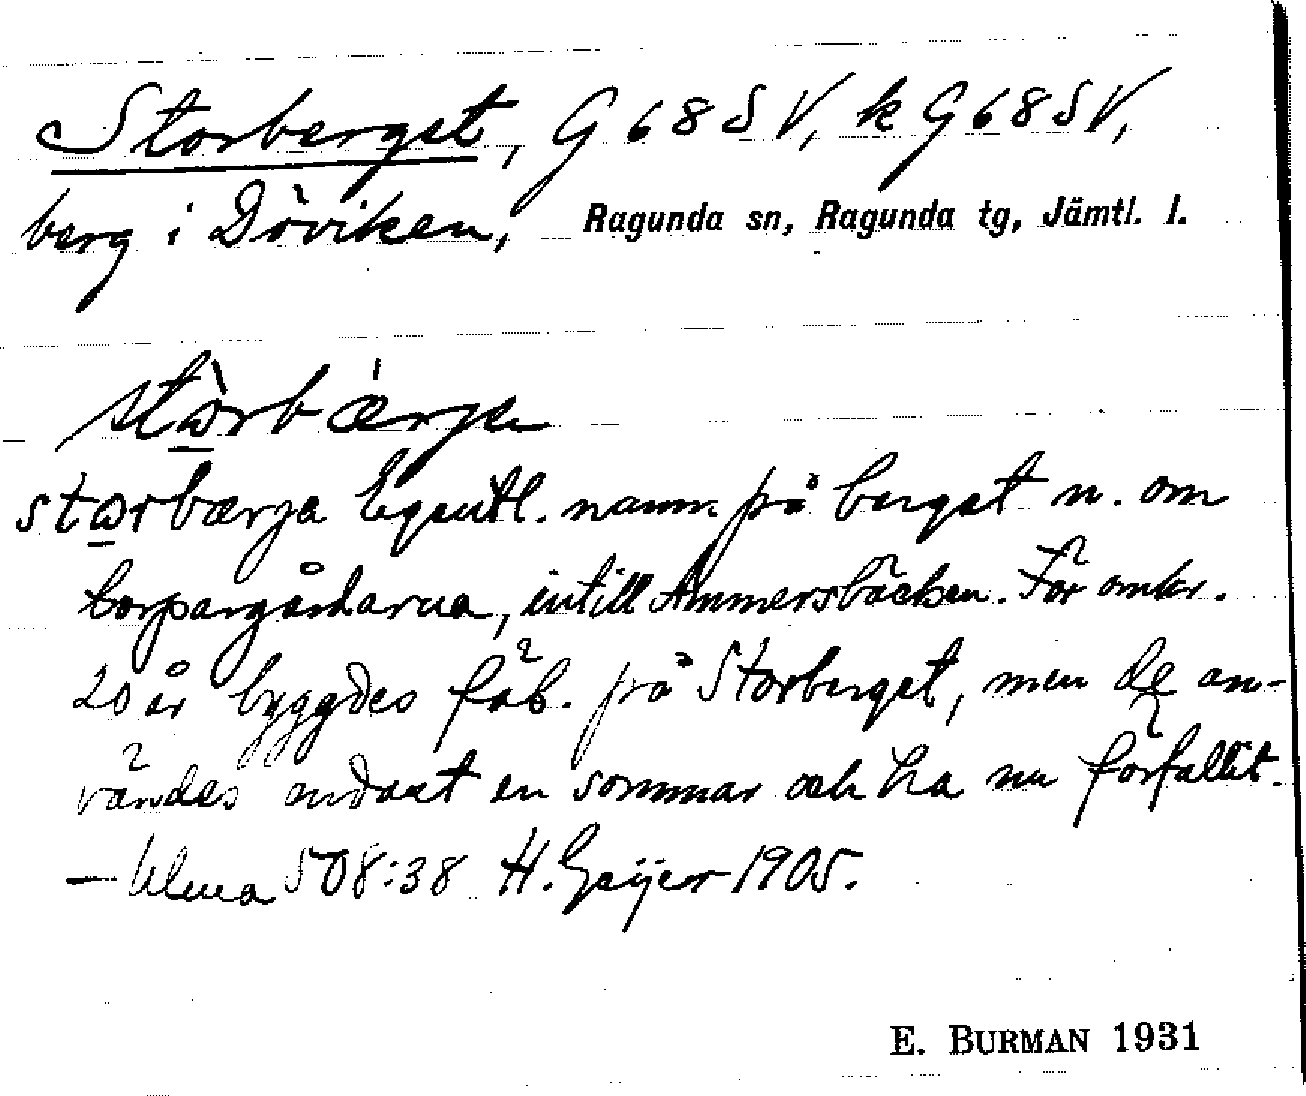 Storberget, G 68 S V, k G 68 S V,
berg i Döviken, Ragunda sn, Ragunda tg, Jämtl. l.
stɷ̀rbǽrjɑ
stɷrbærja Egentl. namn på berget n. om
torpargårdarna, intill Ammersbäcken. För omkr.
20 år byggdes fäb. på Storberget, men de an-
vändes endast en sommar och ha nu förfallit.
– Ulma 508:38 H. Geijer 1905.
E. BURMAN 1931